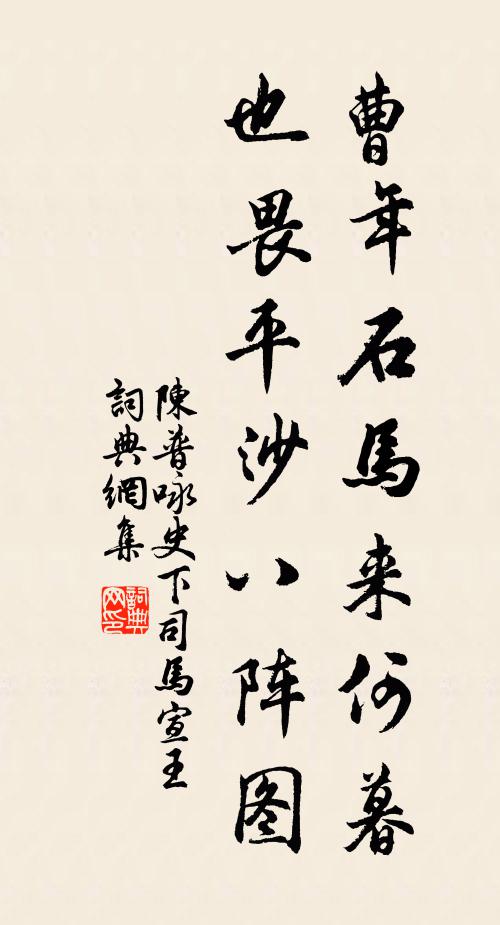 曹年石馬来何暮
也畏平沙八阵图
陳普咏史下司馬宣王
詞典網集
詞典网印